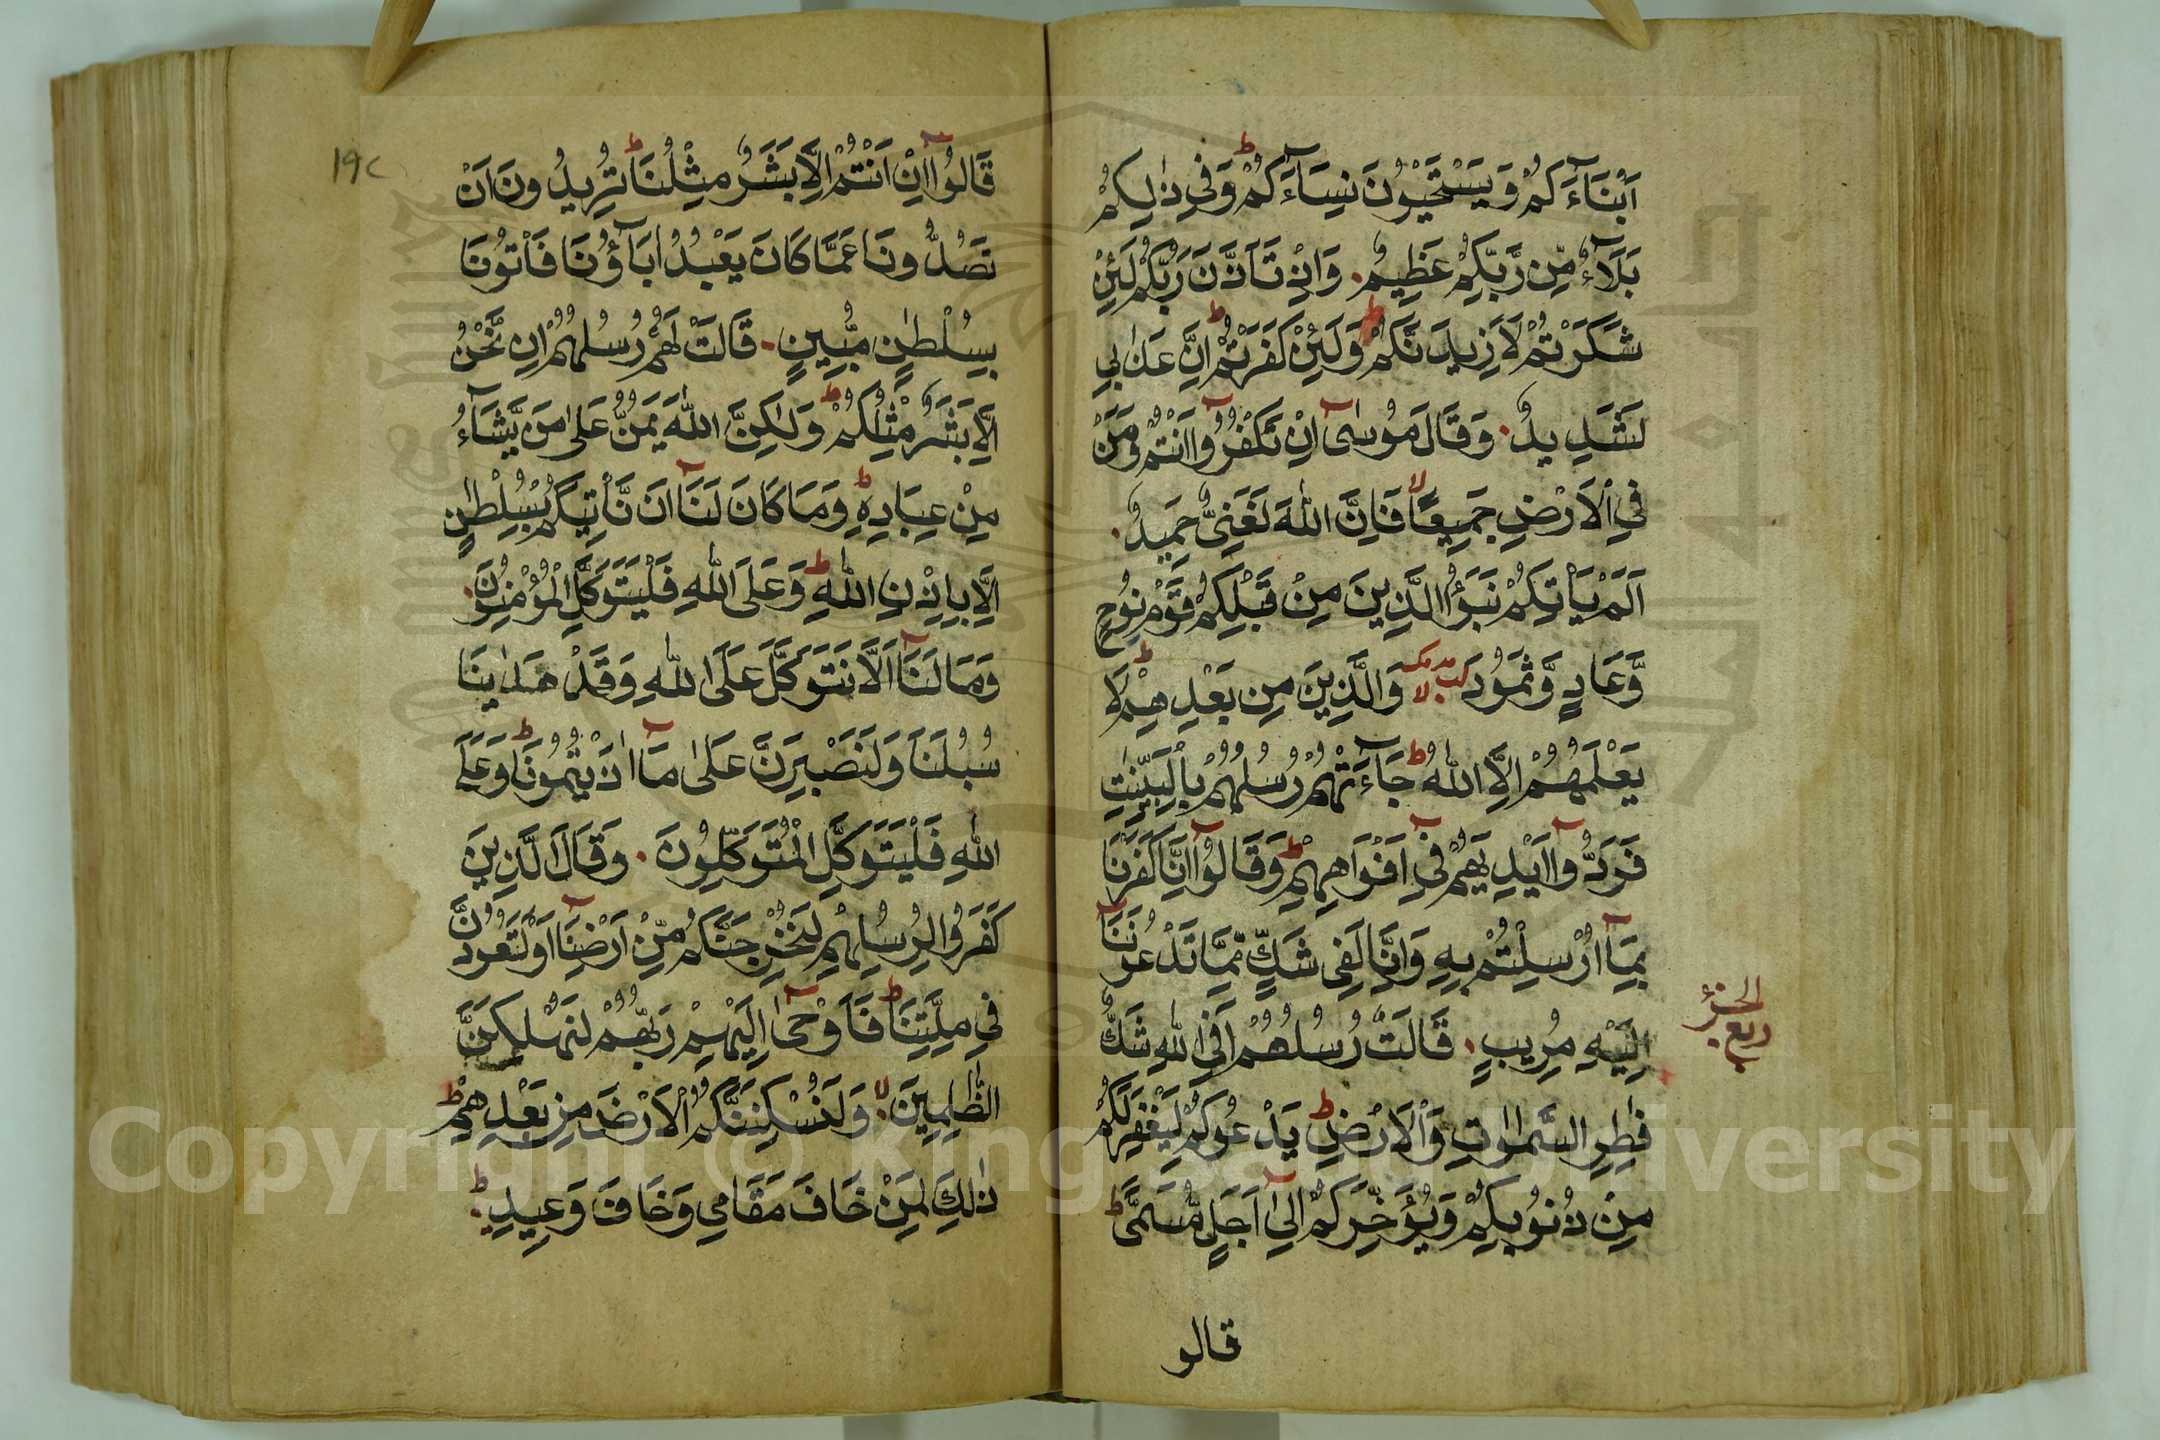 اَبْنَآءَكُمْ وَيَسْتَحْيُوْنَ نِسَآءَكُمْ ؕ وَفِي ذٰلِكُمْ
بَلَآءٌ مِّنْ رَّبِّكُمْ عَظِيْمٌ۰ وَاِذْ تَاَذَّنَ رَبُّكُمْ لَئِنْ
شَكَرْتُمْ لَاَزِيدَنَّكُمْ وَلَئِنْ كَفَرْتُمْ ؕ اِنَّ عَذَابِي
لَشَدِيدٌ۰ وَقَالَ مُوْسٰىٓ اِنْ تَكْفُرُوْٓا اَنْتُمْ وَمَنْ
فِي الْاَرْضِ جَمِيْعًا ۙ فَاِنَّ اللّٰهَ لَغَنِيٌّ حَمِيْدٌ۰
اَلَمْ يَاْتِكُمْ نَبَؤُا الَّذِيْنَ مِنْ قَبْلِكُمْ قَوْمِ نُوْحٍ
وَّعَادٍ وَّثَمُوْدَ وَالَّذِيْنَ مِنْ بَعْدِهِمْ ؕ لَا
يَعْلَمُهُمْ اِلَّا اللّٰهُ ؕ جَآءَتْهُمْ رُسُلُهُمْ بِالْبَيِّنٰتِ
فَرَدُّوْٓا اَيْدِيَهُمْ فِيْٓ اَفْوَاهِهِمْ ؕ وَقَالُوْٓا اِنَّا كَفَرْنَا
بِمَآ اُرْسِلْتُمْ بِهٖ وَاِنَّا لَفِي شَكٍّ مِّمَّا تَدْعُوْنَنَآ
اِلَيْهِ مُرِيْبٍ۰ قَالَتْ رُسُلُهُمْ اَفِي اللّٰهِ شَكٌّ
الحزب
ربع
فٰطِرِ السَّمٰوٰتِ وَالْاَرْضِ ؕ يَدْعُوْكُمْ لِيَغْفِرَ لَكُمْ
مِنْ ذُنُوْبِكُمْ وَيُؤَخِّرَكُمْ اِلٰىٓ اَجَلٍ مُّسَمًّى ؕ
قالو
١٩٢
قَالُوْٓا اِنْ اَنْتُمْ اِلَّا بَشَرٌ مِثْلُنَا ؕ تُرِيْدُوْنَ اَنْ
تَصُدُّوْنَا عَمَّا كَانَ يَعْبُدُ اٰبَآؤُنَا فَاْتُوْنَا
بِسُلْطٰنٍ مُّبِيْنٍ۰ قَالَتْ لَهُمْ رُسُلُهُمْ اِنْ نَّحْنُ
اِلَّا بَشَرٌ مِّثْلُكُمْ ؕ وَلٰكِنَّ اللّٰهَ يَمُنُّ عَلٰى مَنْ يَّشَآءُ
مِنْ عِبَادِهٖ ؕ وَمَا كَانَ لَنَآ اَنْ نَّاْتِيَكُمْ بِسُلْطٰنٍ
اِلَّا بِاِذْنِ اللّٰهِ ؕ وَعَلَى اللّٰهِ فَلْيَتَوَكَّلِ الْمُؤْمِنُوْنَ۰
وَمَا لَنَآ اَلَّا نَتَوَكَّلَ عَلَى اللّٰهِ وَقَدْ هَدٰىنَا
سُبُلَنَا ؕ وَلَنَصْبِرَنَّ عَلٰى مَآ اٰذَيْتُمُوْنَا ؕ وَعَلَى
اللّٰهِ فَلْيَتَوَكَّلِ الْمُتَوَكِّلُوْنَ۰ وَقَالَ الَّذِيْنَ
كَفَرُوْا لِرُسُلِهِمْ لَنُخْرِجَنَّكُمْ مِّنْ اَرْضِنَآ اَوْ لَتَعُوْدُنَّ
فِي مِلَّتِنَا ؕ فَاَوْحٰىٓ اِلَيْهِمْ رَبُّهُمْ لَنُهْلِكَنَّ
الظّٰلِمِيْنَ ۙ۰ وَلَنُسْكِنَنَّكُمُ الْاَرْضَ مِنْ بَعْدِهِمْ ؕ
ذٰلِكَ لِمَنْ خَافَ مَقَامِي وَخَافَ وَعِيْدِ۰ ؕ
Copyright © King Saud University